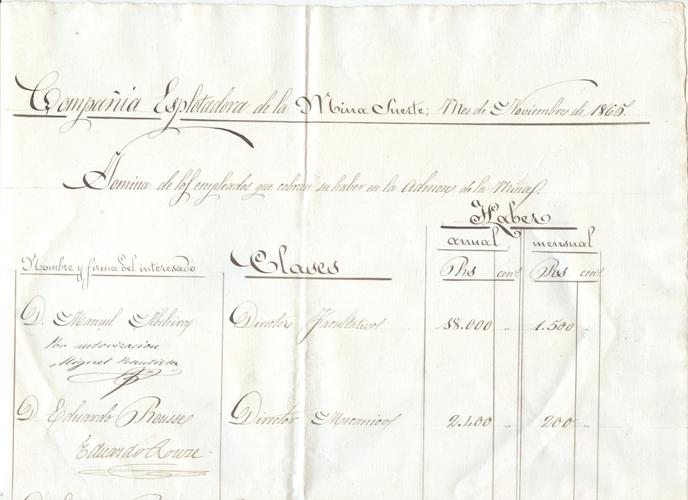 Compañia Esplotadora de la Mina Suerte; Mes de Noviembre de 1865.
Nomina de los empleados que cobran su haber en la Admon. de la Mina
Haber
annual mensual
Nombre y firma del interesado Clases Rvs cent. Rvs cent.
D. Manuel Director Facultativo 18.000 " 1.500 "
Por autorizacion
Miguel Bautista
D. Eduardo Rousse Director Mecanico 2.400 " 200 "
Eduardo Rouze